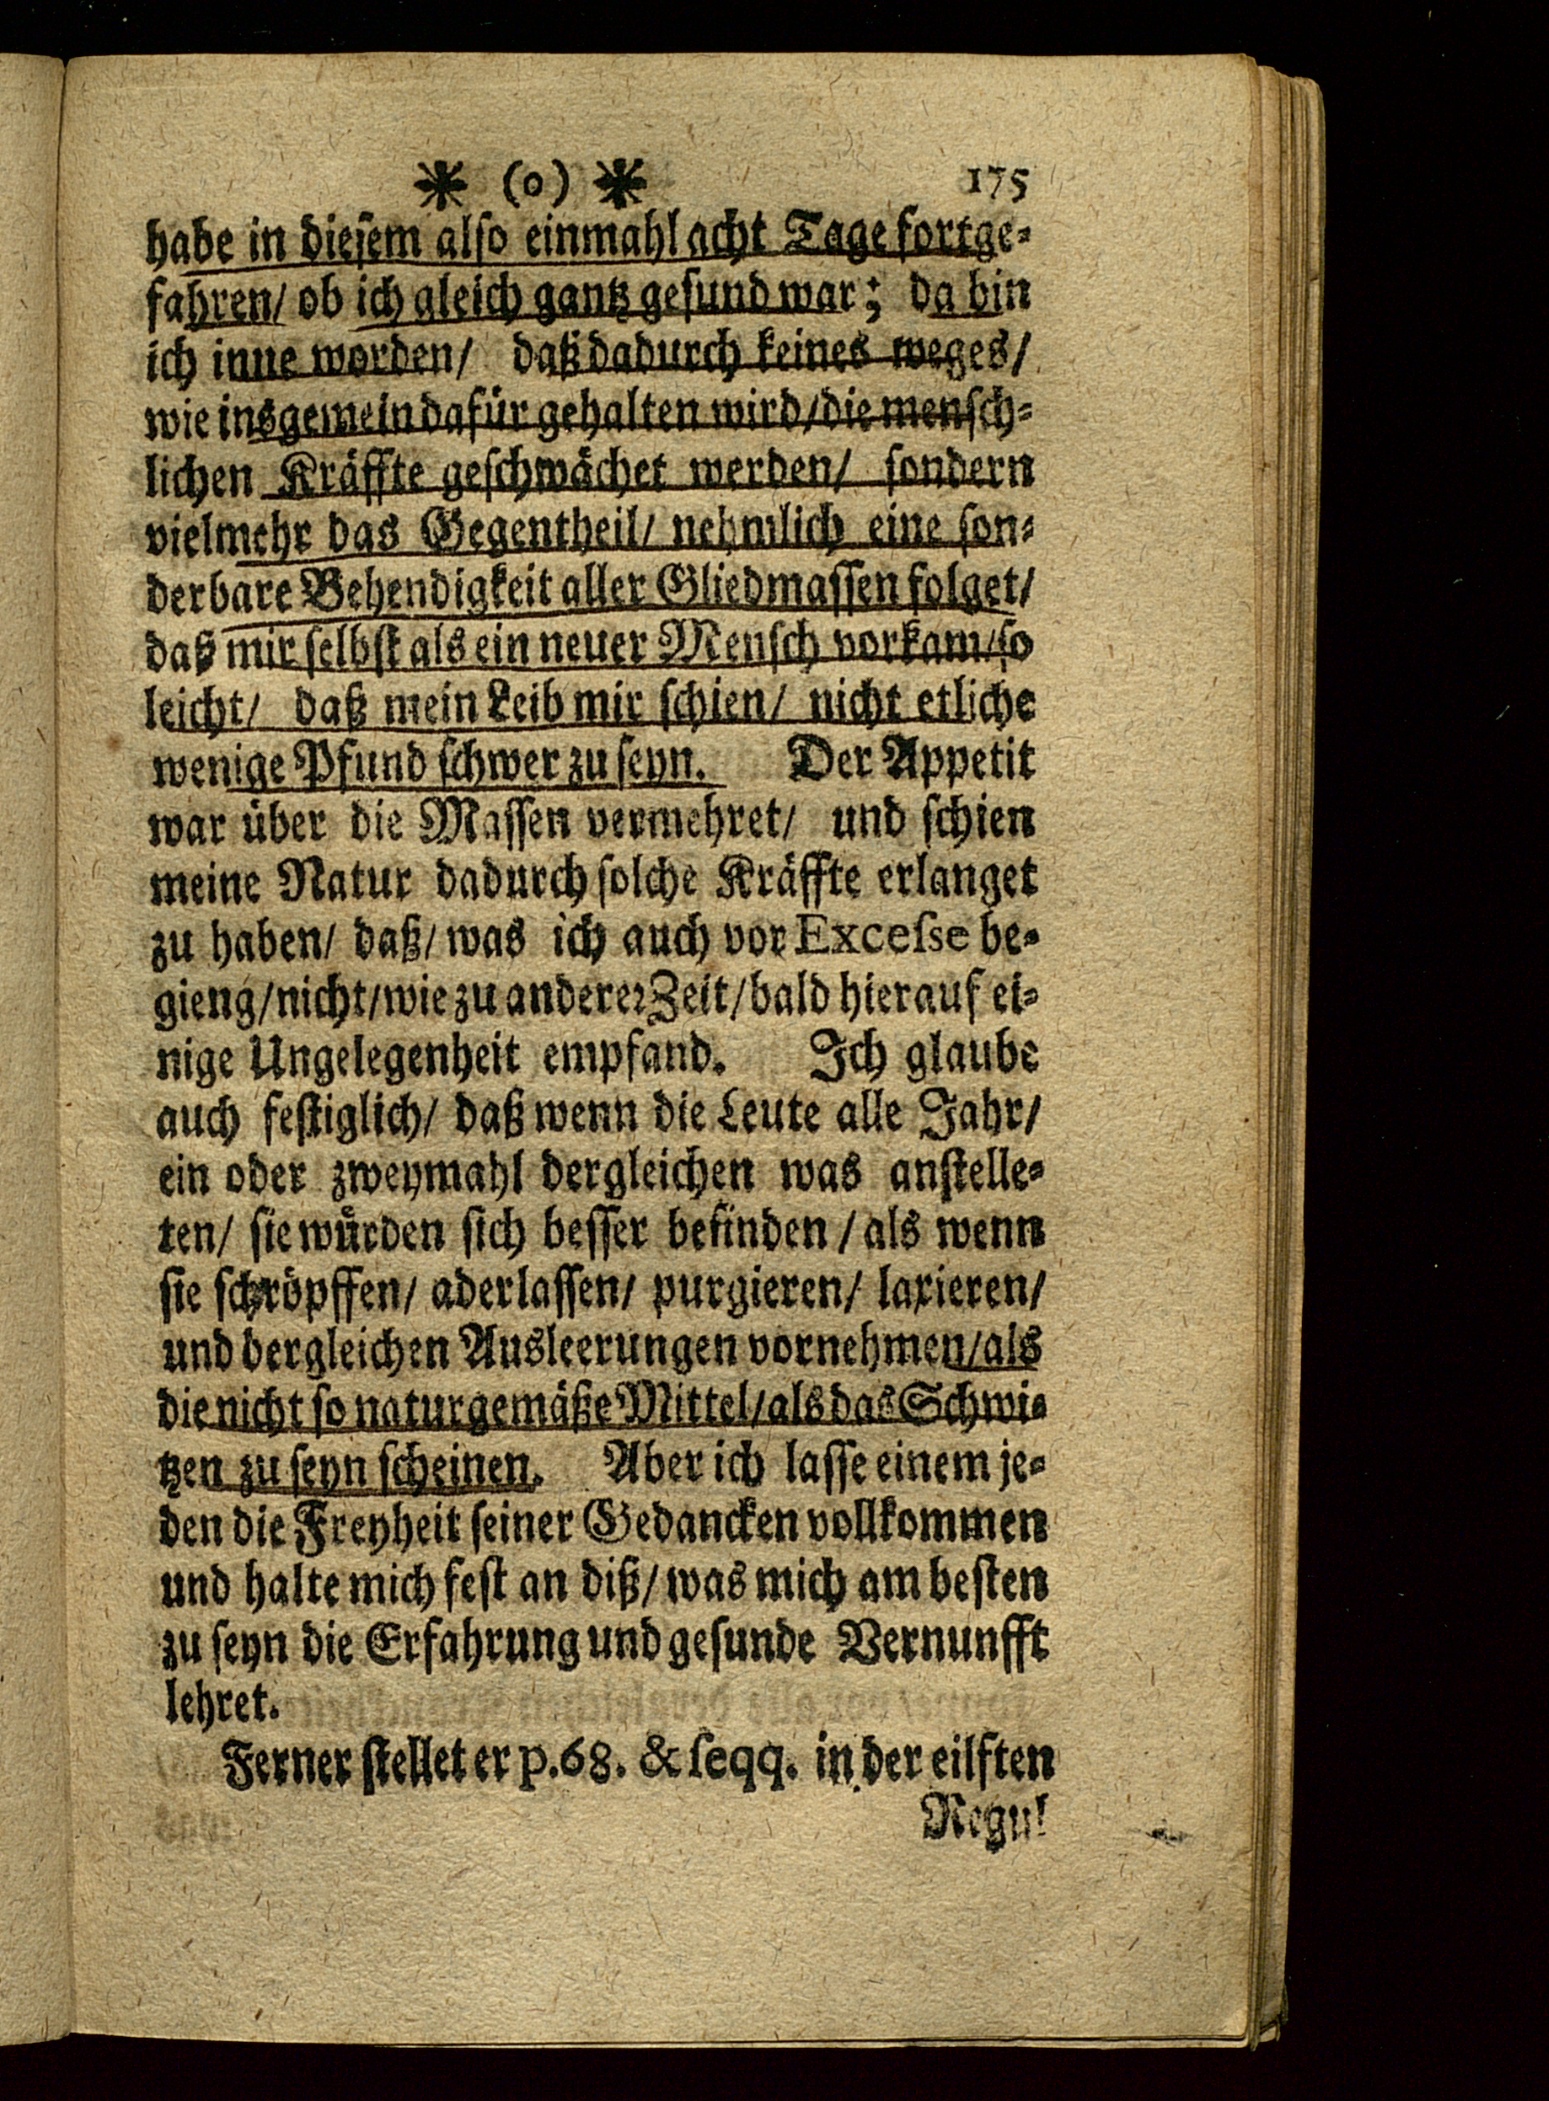 * (0) * 175
habe in diesem also einmahl acht Tage fortge-
fahren/ ob ich gleich gantz gesund war; da bin
ich inne worden/ daß dadurch keines weges/
wie insgemein dafür gehalten wird/ die mensch-
lichen Kräffte geschwächet werden/ sondern
vielmehr das Gegentheil/ nehmlich eine son-
derbare Behendigkeit aller Gliedmassen folget/
daß mir selbst als ein neuer Mensch vorkam/ so
leicht/ daß mein Leib mir schien/ nicht etliche
wenige Pfund schwer zu seyn. Der Appetit
war über die Massen vermehret/ und schien
meine Natur dadurch solche Kräffte erlanget
zu haben/ daß/ was ich auch vor Excesse be-
gieng/ nicht/ wie zu anderer Zeit/ bald hierauf ei-
nige Ungelegenheit empfand. Ich glaube
auch festiglich/ daß wenn die Leute alle Jahr/
ein oder zweymahl dergleichen was anstelle-
ten/ sie würden sich besser befinden/ als wenn
sie schröpffen/ aderlassen/ purgieren/ laxieren/
und dergleichen Ausleerungen vornehmen/ als
die nicht so naturgemäße Mittel/ als das Schwi-
tzen zu seyn scheinen. Aber ich lasse einem je-
den die Freyheit seiner Gedancken vollkommen
und halte mich fest an diß/ was mich am besten
zu seyn die Erfahrung und gesunde Vernunfft
lehret.
Ferner stellet er p. 68. & seqq. in der eilften
Regul